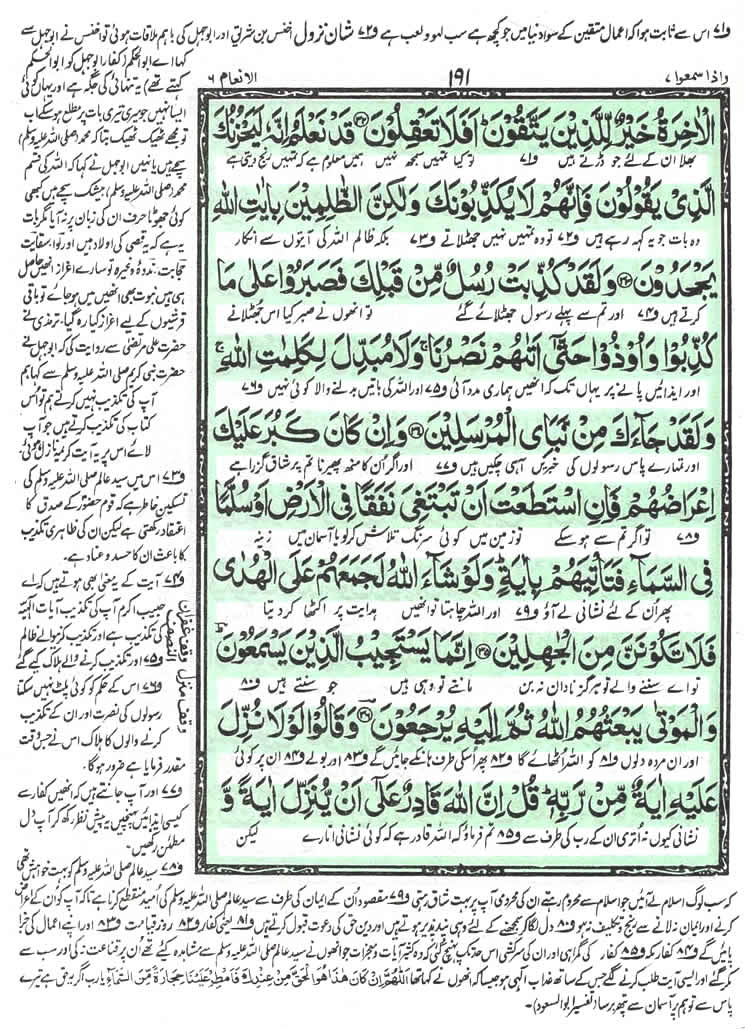 و۷۱ اس سے ثابت ہوا کہ اعمال متقین کے سوا دنیا میں جو کچھ ہے سب لہو و لعب ہے و۷۲ شان نزول اخنس بن شریق اور ابوجہل کی باہم ملاقات ہوئی تو اخنس نے ابوجہل سے
واذا سمعوا ۷
۱۹۱
الانعام ۶
الْاٰخِرَةُ خَیْرٌ لِّلَّذِیْنَ یَتَّقُوْنَ اَفَلَا تَعْقِلُوْنَ قَدْ نَعْلَمُ اِنَّهٗ لَیَحْزُنُكَ
بھلا ان کے لئے جو ڈرتے ہیں و۷۱ تو کیا تمہیں سمجھ نہیں ہمیں معلوم ہے کہ تمہیں رنج دیتی ہے
الَّذِیْ یَقُوْلُوْنَ فَاِنَّهُمْ لَا یُكَذِّبُوْنَكَ وَلٰكِنَّ الظّٰلِمِیْنَ بِاٰیٰتِ اللّٰهِ
وہ بات جو یہ کہہ رہے ہیں و۷۲ تو وہ تمہیں نہیں جھٹلاتے و۷۳ بلکہ ظالم اللہ کی آیتوں سے انکار
یَجْحَدُوْنَ وَلَقَدْ كُذِّبَتْ رُسُلٌ مِّنْ قَبْلِكَ فَصَبَرُوْا عَلٰی مَا
کرتے ہیں و۷۴ اور تم سے پہلے رسول جھٹلائے گئے تو انھوں نے صبر کیا اس جھٹلانے
كُذِّبُوْا وَاُوْذُوْا حَتّٰۤی اَتٰىهُمْ نَصْرُنَا وَلَا مُبَدِّلَ لِكَلِمٰتِ اللّٰهِ
اور ایذائیں پانے پر یہاں تک کہ انھیں ہماری مدد آئی و۷۵ اور اللہ کی باتیں بدلنے والا کوئی نہیں و۷۶
وَلَقَدْ جَآءَكَ مِنْ نَّبَاِی الْمُرْسَلِیْنَ وَاِنْ كَانَ كَبُرَ عَلَیْكَ
اور تمہارے پاس رسولوں کی خبریں آ ہی چکیں ہیں و۷۷ اور اگر ان کا منہ پھیرنا تم پر شاق گزرا ہے
اِعْرَاضُهُمْ فَاِنِ اسْتَطَعْتَ اَنْ تَبْتَغِیَ نَفَقًا فِی الْاَرْضِ اَوْ سُلَّمًا
و۷۸ تو اگر تم سے ہو سکے تو زمین میں کوئی سرنگ تلاش کر لو یا آسمان میں زینہ
فِی السَّمَآءِ فَتَاْتِیَهُمْ بِاٰیَةٍ وَلَوْ شَآءَ اللّٰهُ لَجَمَعَهُمْ عَلَی الْهُدٰی
پھر ان کے لئے نشانی لے آؤ و۷۹ اور اللہ چاہتا تو انھیں ہدایت پر اکٹھا کر دیتا
فَلَا تَكُوْنَنَّ مِنَ الْجٰهِلِیْنَ اِنَّمَا یَسْتَجِیْبُ الَّذِیْنَ یَسْمَعُوْنَ
تو اے سننے والے تو ہرگز نادان نہ بن مانتے تو وہی ہیں جو سنتے ہیں و۸۰
وَالْمَوْتٰی یَبْعَثُهُمُ اللّٰهُ ثُمَّ اِلَیْهِ یُرْجَعُوْنَ وَقَالُوْا لَوْلَا نُزِّلَ
اور ان مردہ دلوں و۸۱ کو اللہ اٹھائے گا و۸۲ پھر اسکی طرف ہانکے جائیں گے و۸۳ اور بولے و۸۴ ان پر کوئی
عَلَیْهِ اٰیَةٌ مِّنْ رَّبِّهٖ قُلْ اِنَّ اللّٰهَ قَادِرٌ عَلٰۤی اَنْ یُّنَزِّلَ اٰیَةً وَّ
نشانی کیوں نہ اتری ان کے رب کی طرف سے و۸۵ تم فرماؤ کہ اللہ قادر ہے کہ کوئی نشانی اتارے لیکن
کہا اے ابوالحکم (کفار ابوجہل کو ابوالحکم
کہتے تھے) یہ تنہائی کی جگہ ہے اور یہاں کوئی
ایسا نہیں جو میری تیری بات پر مطلع ہو سکے اب
تو مجھے ٹھیک ٹھیک بتا کہ محمد (صلی اللہ علیہ وسلم)
سچے ہیں یا نہیں ابوجہل نے کہا کہ اللہ کی قسم
محمد (صلی اللہ علیہ وسلم) بیشک سچے ہیں کبھی
کوئی جھوٹا حرف ان کی زبان پر نہ آیا مگر بات
یہ ہے کہ یہ قصی کی اولاد ہیں اور لوا سقایت
حجابت ندوہ وغیرہ تو سارے اعزاز انھیں حاصل
ہی ہیں نبوت بھی انھیں میں ہو جائے تو باقی
قرشیوں کے لیے اعزاز کیا رہ گیا، ترمذی نے
حضرت علی مرتضیٰ سے روایت کی کہ ابوجہل نے
حضرت نبی کریم صلی اللہ علیہ وسلم سے کہا ہم
آپ کی تکذیب نہیں کرتے ہم تو اس
کتاب کی تکذیب کرتے ہیں جو آپ
لائے اس پر یہ آیت کریمہ نازل ہوئی
و۷۳ اس میں سید عالم صلی اللہ علیہ وسلم کی
تسکین خاطر ہے کہ قوم حضور کے صدق کا
اعتقاد رکھتی ہے لیکن ان کی ظاہری تکذیب
کا باعث ان کا حسد و عناد ہے۔
و۷۴ آیت کے یہ معنیٰ بھی ہوتے ہیں کہ اے
حبیب اکرم آپ کی تکذیب آیات الہیہ
کی تکذیب ہے اور تکذیب کرنیوالے ظالم
و۷۵ اور تکذیب کرنے والے ہلاک کیے گئے
و۷۶ اس کے حکم کو کوئی پلٹ نہیں سکتا
رسولوں کی نصرت اور ان کے تکذیب
کرنے والوں کا ہلاک اس نے جس وقت
مقدر فرمایا ہے ضرور ہوگا۔
و۷۷ اور آپ جانتے ہیں کہ انھیں کفار سے
کیسی ایذائیں پہنچیں یہ پیش نظر رکھ کر آپ دل
مطمئن رکھیں۔
و۷۸ سید عالم صلی اللہ علیہ وسلم کو بہت خواہش تھی
وقف غفران
وقف منزل النصف
کہ سب لوگ اسلام لے آئیں جو اسلام سے محروم رہتے ان کی محرومی آپ پر بہت شاق رہتی و۷۹ مقصود ان کے ایمان کی طرف سے سید عالم صلی اللہ علیہ وسلم کی امید منقطع کرنا ہے تاکہ آپ کو ان کے اعراض
کرنے اور ایمان نہ لانے سے رنج و تکلیف نہ ہو و۸۰ دل لگا کر سمجھنے کے لئے وہی پند پذیر ہوتے ہیں اور دین حق کی دعوت قبول کرتے ہیں و۸۱ یعنی کفار و۸۲ روز قیامت و۸۳ اور اپنے اعمال کی جزا
پائیں گے و۸۴ کفار مکہ و۸۵ کفار کی گمراہی اور ان کی سرکشی اس حد تک پہنچ گئی کہ وہ کثیر آیات و معجزات جو انھوں نے سید عالم صلی اللہ علیہ وسلم سے مشاہدہ کیے تھے ان پر قناعت نہ کی اور سب سے
مکر گئے اور ایسی آیت طلب کرنے لگے جس کے ساتھ عذاب الہی ہو جیسا کہ انھوں نے کہا تھا اَللّٰهُمَّ اِنْ كَانَ هٰذَا هُوَ الْحَقَّ مِنْ عِنْدِكَ فَاَمْطِرْ عَلَیْنَا حِجَارَةً مِّنَ السَّمَآءِ یارب اگر یہی حق ہے تیرے
پاس سے تو ہم پر آسمان سے پتھر برسا (تفسیر ابوالسعود)۔